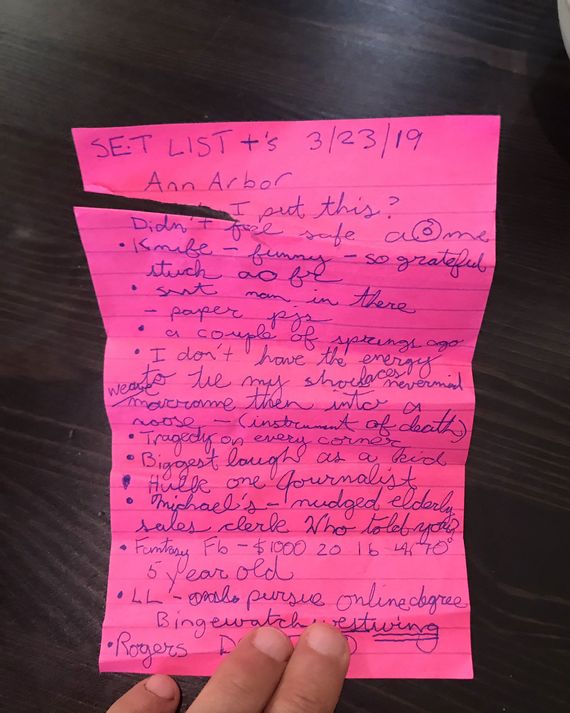 SET LIST +'s 3/23/19
Ann Arbor
I put this?
Didn't feel safe @ me
• Knife - funny - so grateful
stuck
• man in there
- paper pjs
• a couple of springs ago
• I don't have the energy
to tie my shoelaces nevermind
weave
macrame then into a
noose - (instrument of death)
• Tragedy on every corner
• Biggest laugh as a kid
• Hulk one Journalist
• Michael's - nudged elderly
sales clerk Who told you?
• Fantasy Fb - $1000 20 lb 70°
5 year old
• LL - pursue online degree
Bingewatch westwing
• Rogers D